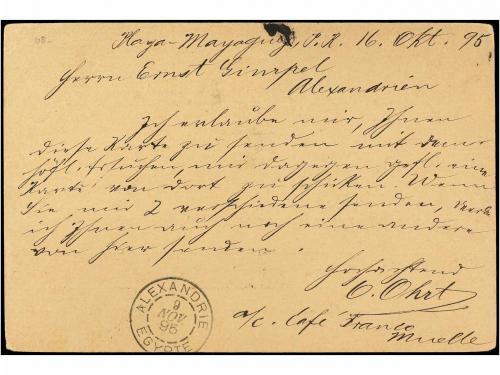 Playa-Mayaguez, P. R. 16. Okt. 95
Herrn Ernst Gimpel
Alexandrien
Ich erlaube mir, Ihnen
diese Karte zu senden mit dem
höfl. Ersuchen, mir dagegen gefl. eine
Karte von dort zu schicken. Wenn
Sie mir 2 verschiedene senden, werde
ich Ihnen auch noch eine andere
von hier senden.
Hochachtend
O. Ohrt
a/c. Café Franco
Muelle
ALEXANDRIE
9
NOV
95
EGYPTE